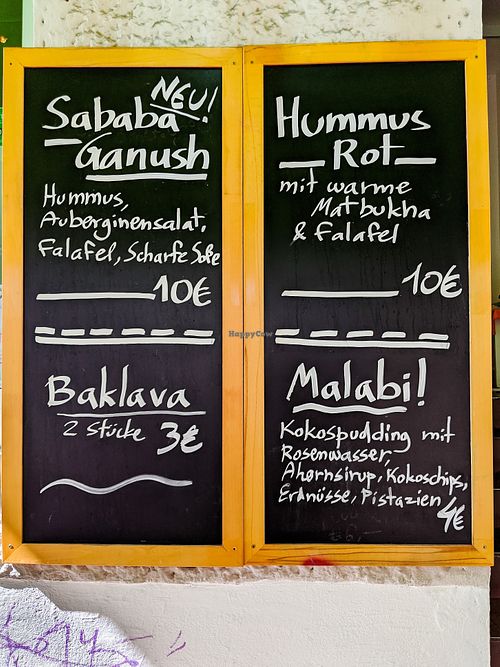 NEU!
Sababa
Ganush
Hummus,
Auberginensalat,
Falafel, Scharfe Soße
10€
Baklava
2 Stücke 3€
Hummus
Rot
mit warme
Matbukha
& Falafel
10€
Malabi!
Kokospudding mit
Rosenwasser,
Ahornsirup, Kokoschips,
Erdnüsse, Pistazien
4€
HappyCow